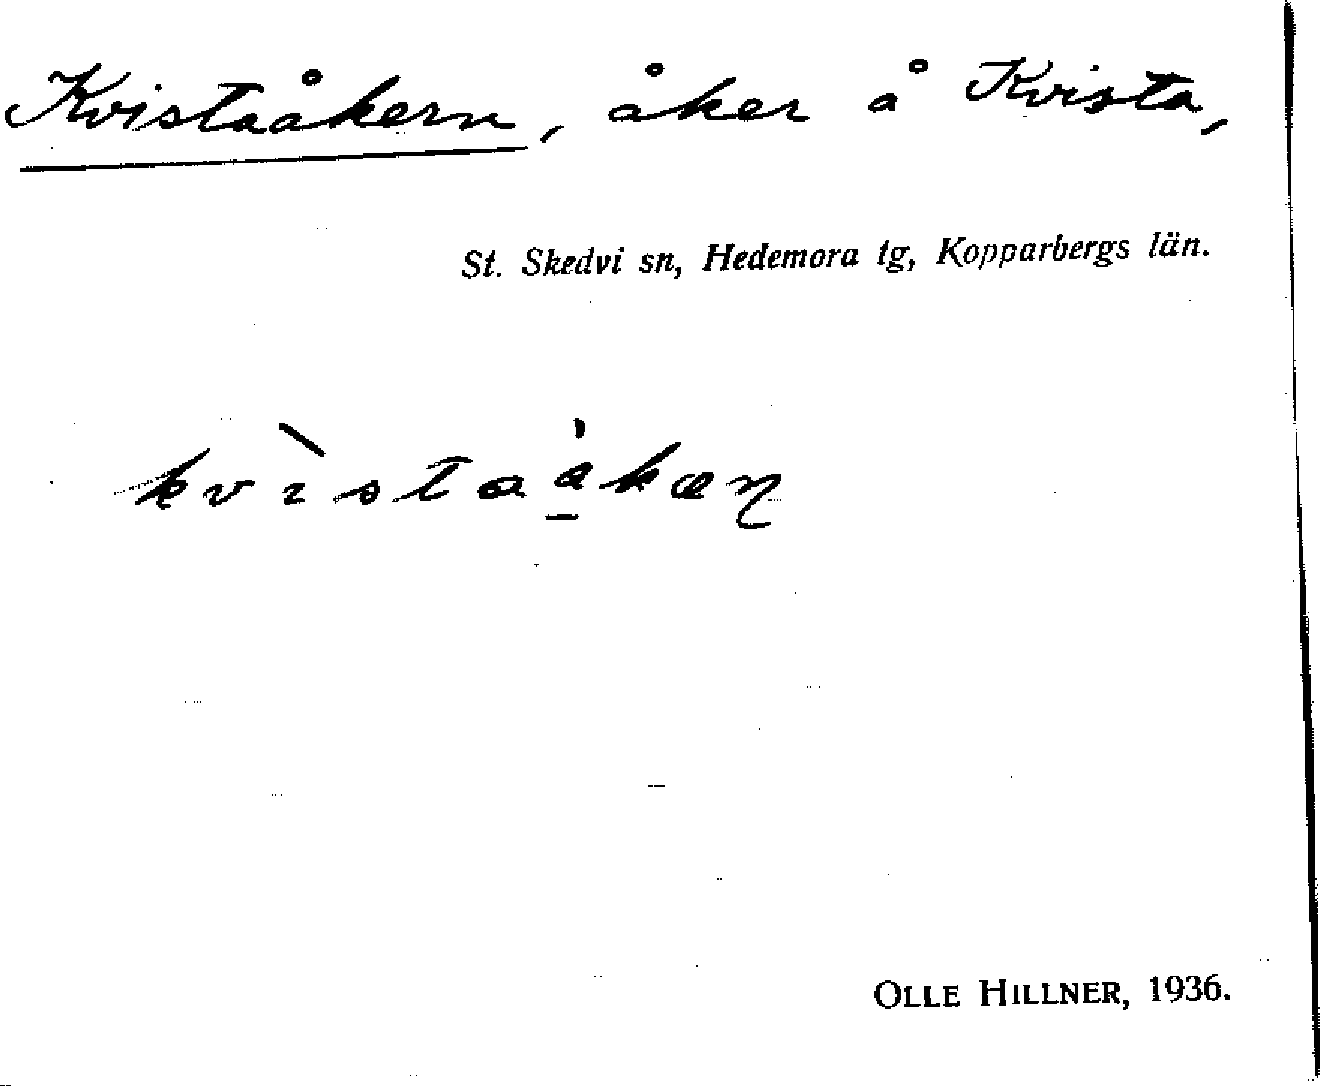 Kvistaåkern, åker å Kvista,
St. Skedvi sn, Hedemora tg, Kopparbergs län.
kvìstaåkæɳ
OLLE HILLNER, 1936.